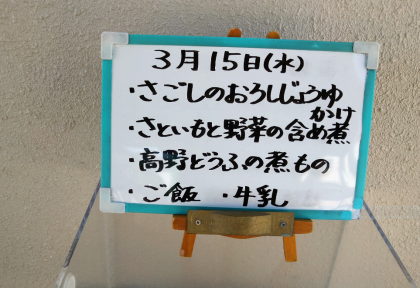 3月15日(水)
・さごしのおろしじょうゆ
かけ
・さといもと野菜の含め煮
・高野どうふの煮もの
・ご飯 ・牛乳